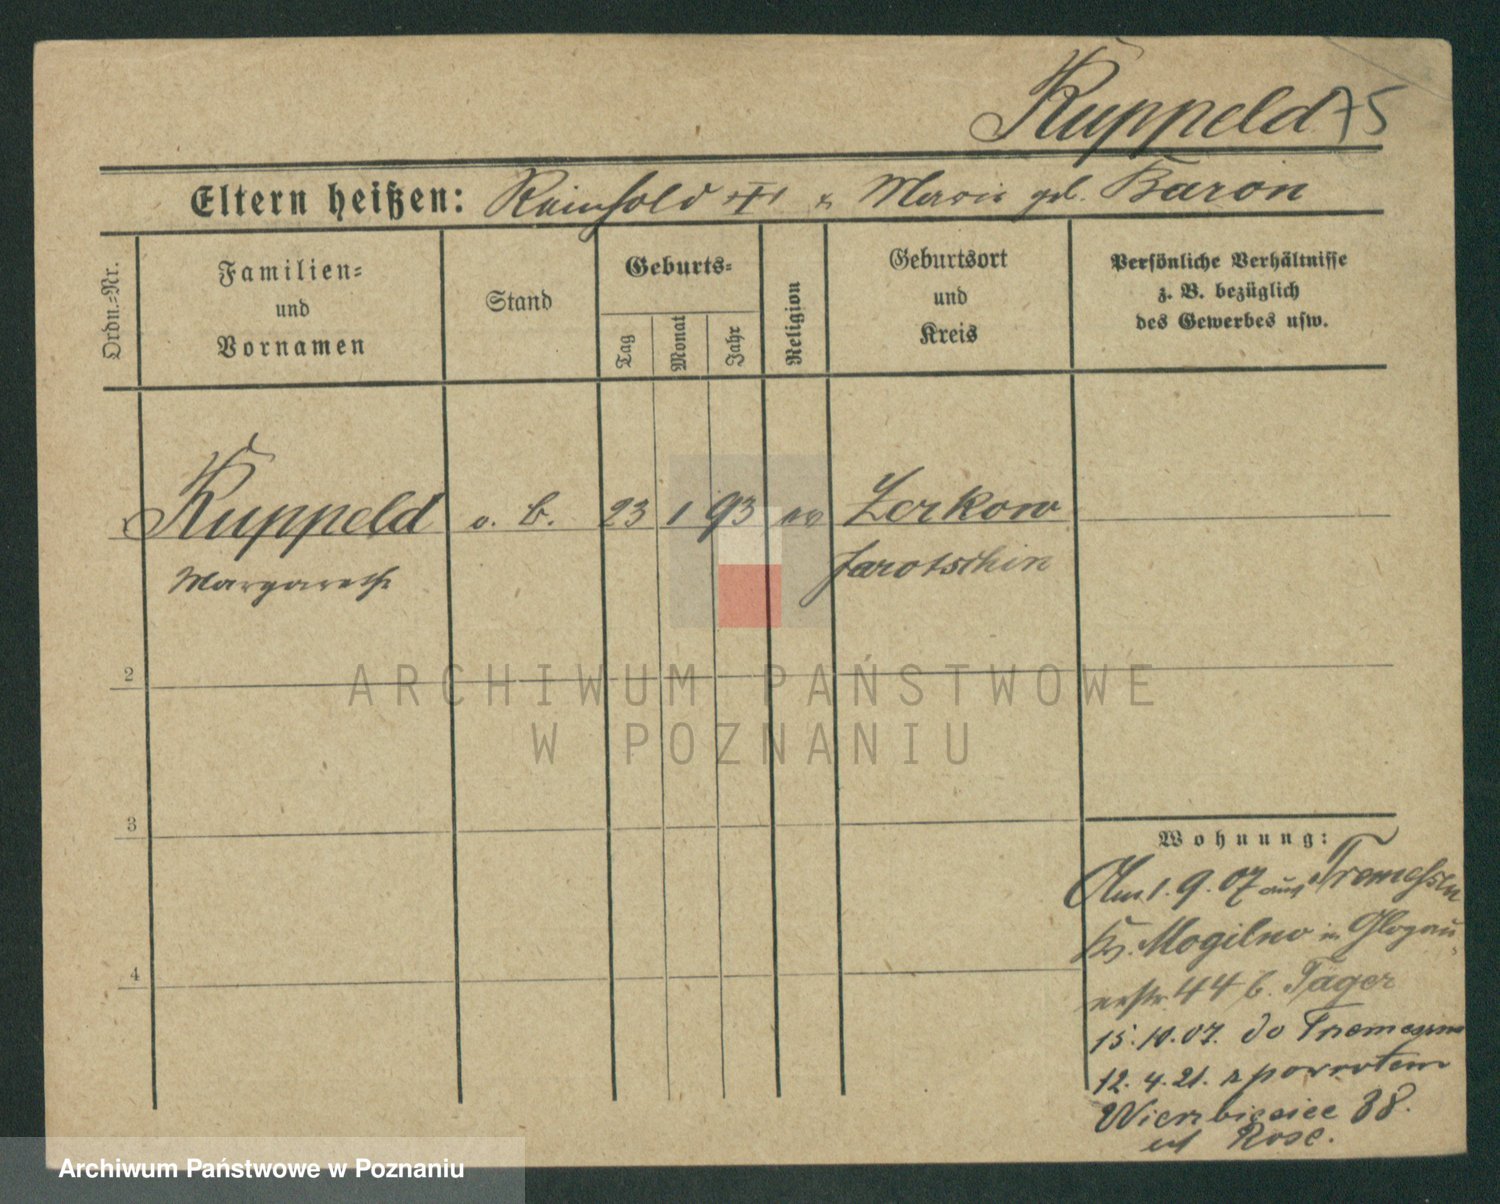 Kuppeld 75
Eltern heißen: Reinhold & Marie geb. Baron
Ordn.-Nr.
Familien-
und
Vornamen
Stand
Geburts-
Tag
Monat
Jahr
Religion
Geburtsort
und
Kreis
Persönliche Verhältnisse
z. B. bezüglich
des Gewerbes usw.
Kuppeld o. B. 23 1 93 ev Zerkow
Margarethe Jarotschin
2
3
4
Wohnung:
Am 1.9.07 aus Tremessen
Kr. Mogilno in Glogau-
erstr. 44 b. Täger
15.10.07. do Tremeszna
12.4.21. z powrotem
Wierzbięcice 38.
Rose.
ARCHIWUM PAŃSTWOWE
W POZNANIU
Archiwum Państwowe w Poznaniu